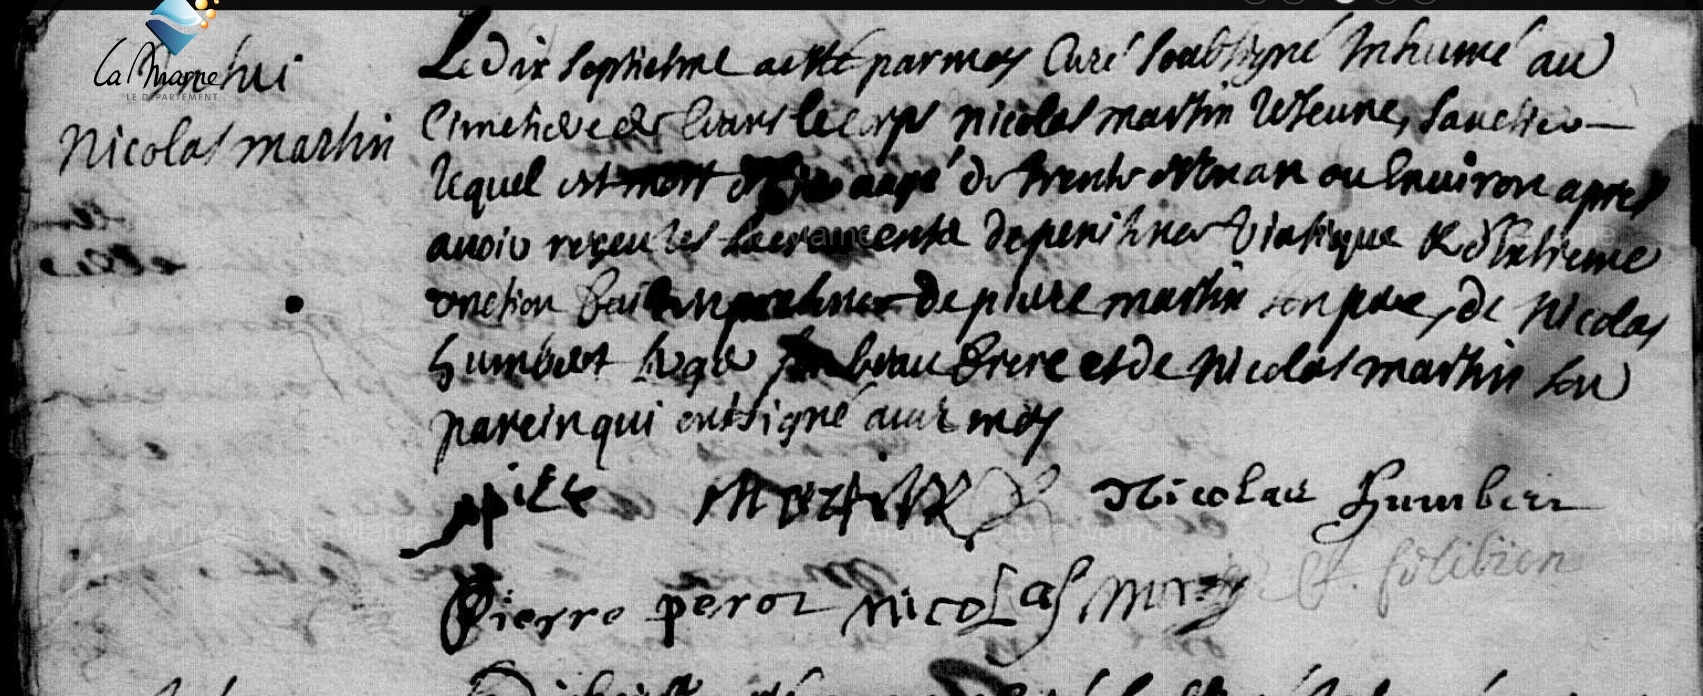 La Marne
LE DÉPARTEMENT
Nicolas martin
Le dix septiesme a esté par moy Curé soubsigné Inhumé au
Cimetiere de ceans le corps Nicolas martin le Jeune,
lequel est mort aagé de trente et un an ou Environ apres
avoir reçeu les sacraments de penitence Viatique & d'Extreme
onction fait En presence de pierre martin son pere, de Nicolas
humbert beau frere et de Nicolas martin son
parein qui ont signé avec moy
martin Nicolas humbert
Pierre perot Nicolas